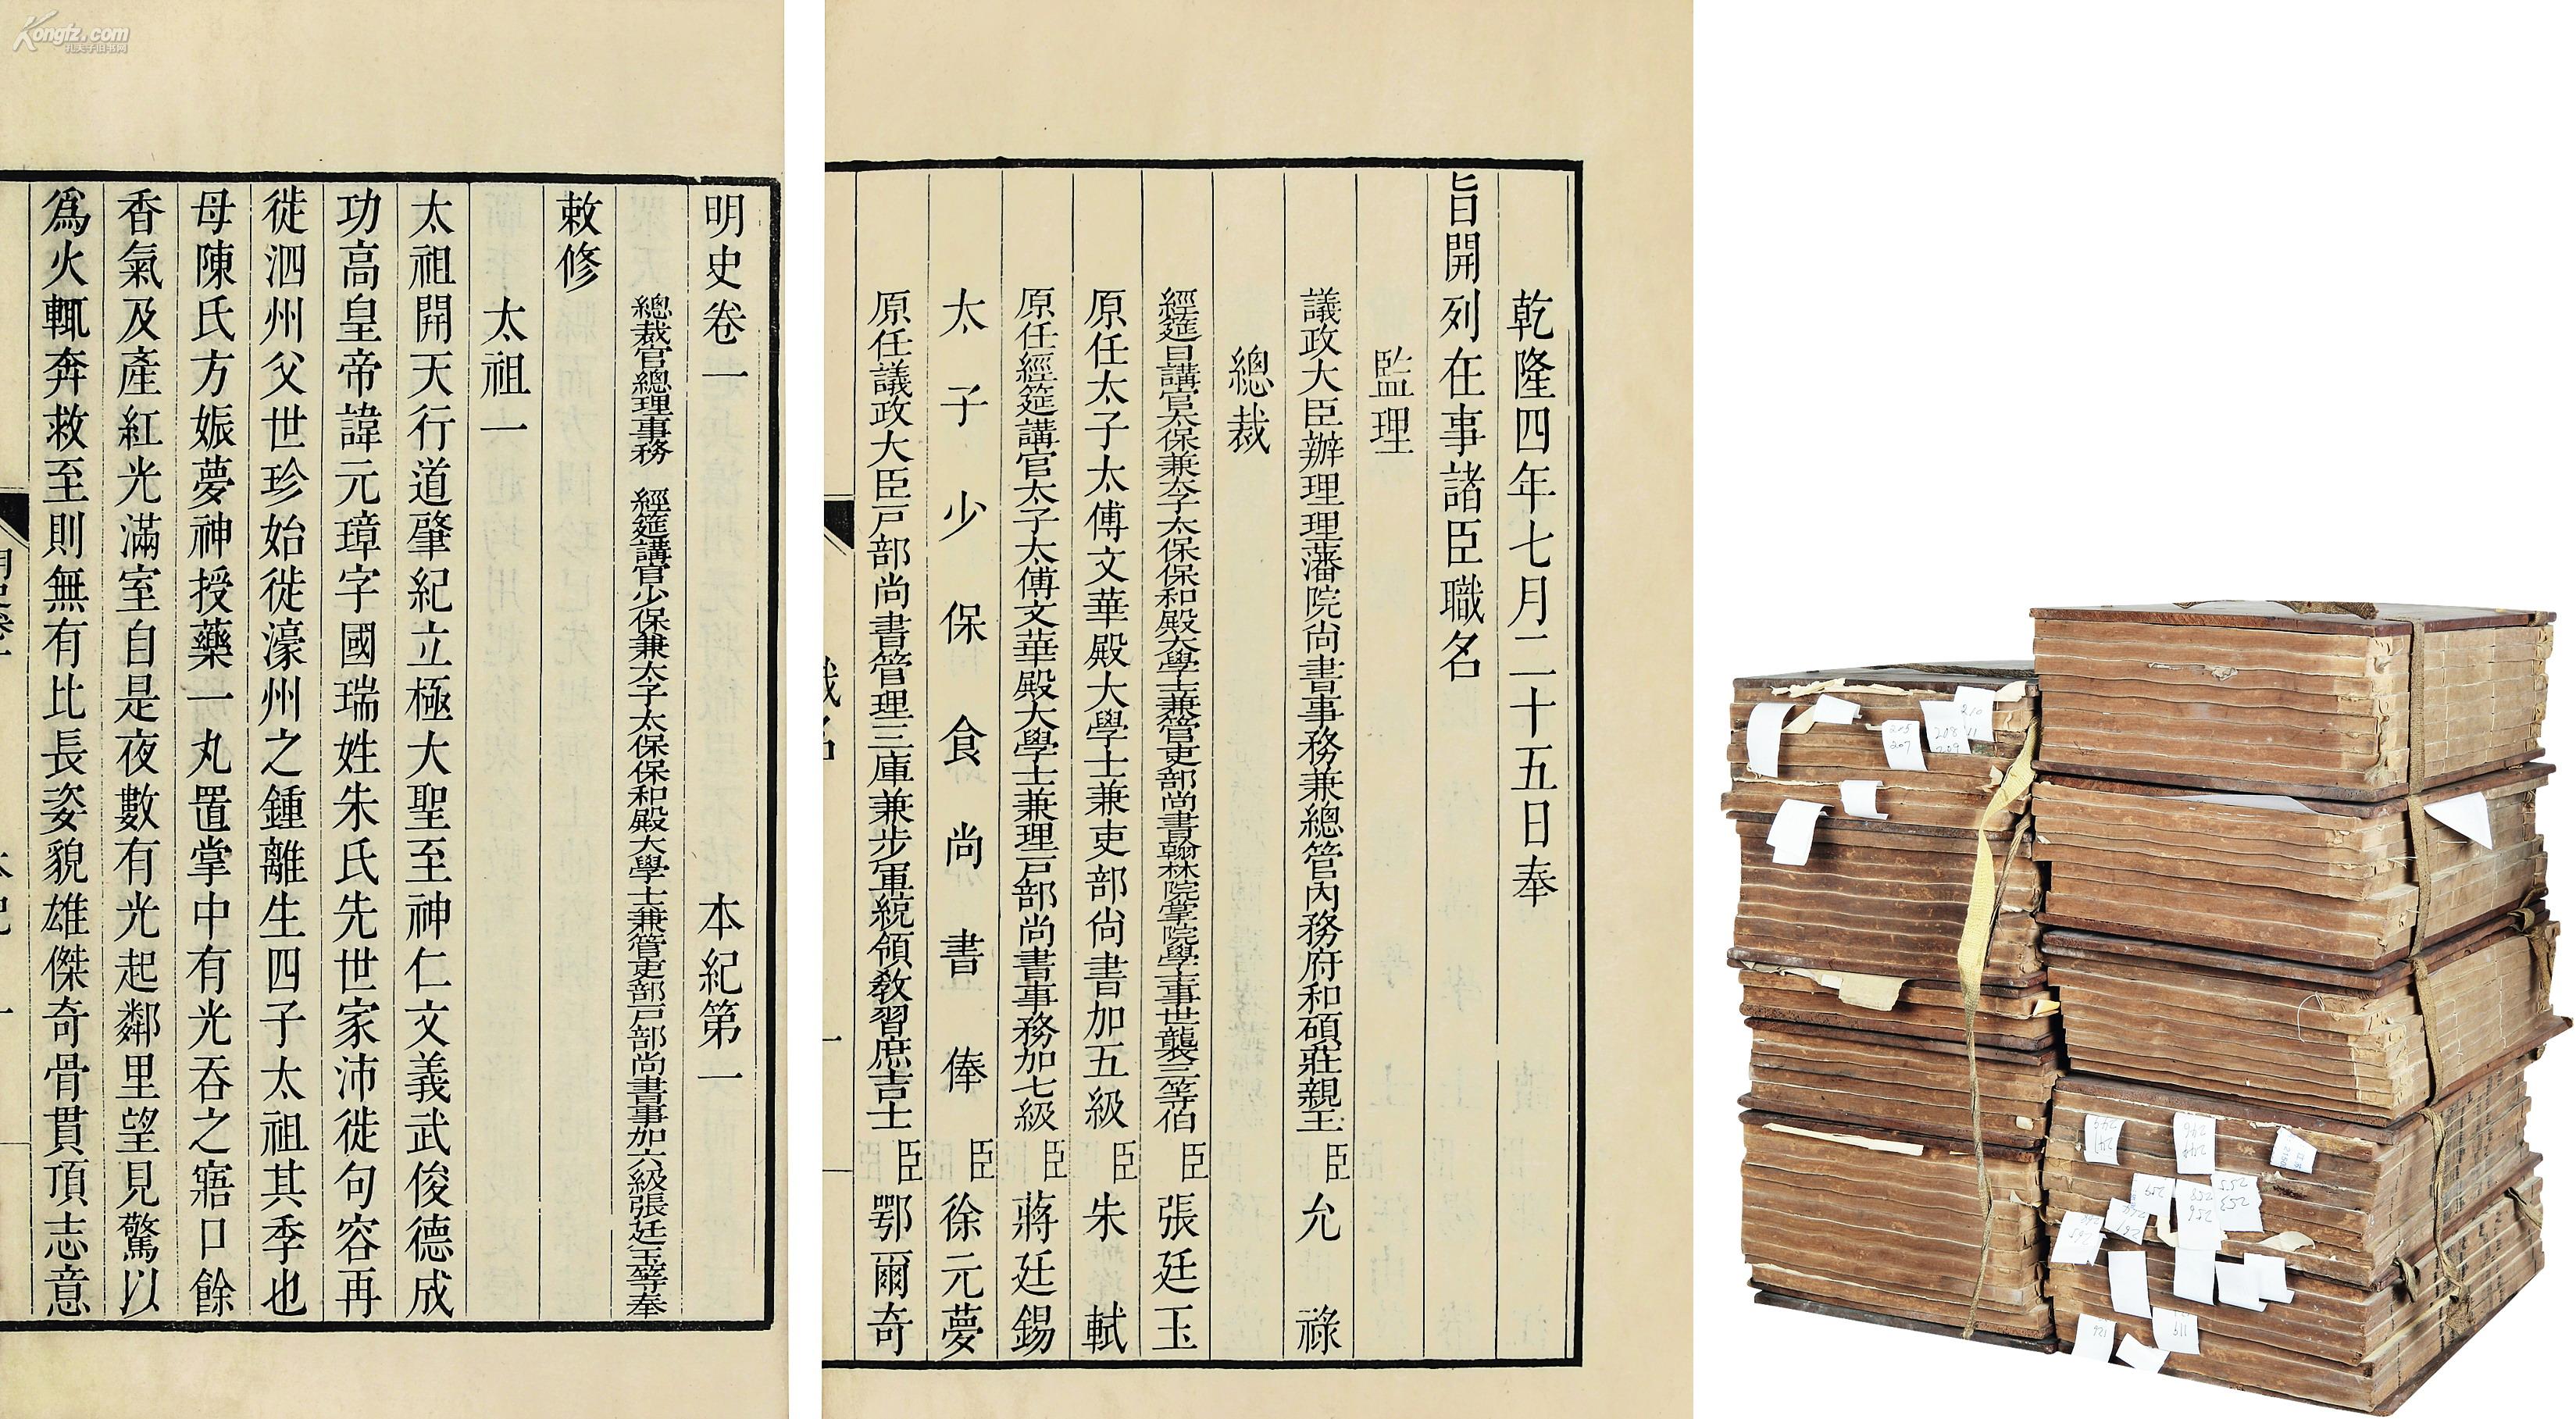 Kongfz.com
孔夫子旧书网
明史卷一 本紀第一
總裁官總理事務 經筵講官少保兼太子太保保和殿大學士兼管吏部戸部尚書事加六級張廷玉等奉
敕修
太祖一
太祖開天行道肇紀立極大聖至神仁文義武俊德成
功高皇帝諱元璋字國瑞姓朱氏先世家沛徙句容再
徙泗州父世珍始徙濠州之鍾離生四子太祖其季也
母陳氏方娠夢神授藥一丸置掌中有光吞之寤口餘
香氣及產紅光滿室自是夜數有光起鄰里望見驚以
爲火輒奔救至則無有比長姿貌雄傑奇骨貫頂志意
乾隆四年七月二十五日奉
旨開列在事諸臣職名
監理
議政大臣辦理理藩院尚書事務兼總管內務府和碩莊親王臣允祿
總裁
經筵日講官太保兼太子太保保和殿大學士兼管吏部尚書翰林院掌院學士事世襲三等伯臣張廷玉
原任太子太傅文華殿大學士兼吏部尚書加五級臣朱軾
原任經筵講官太子太傅文華殿大學士兼理戸部尚書事務加七級臣蔣廷錫
太子少保食尚書俸臣徐元夢
原任議政大臣戸部尚書管理三庫兼步軍統領敎習庶吉士臣鄂爾奇
職名 一
210
205
207
208 11
209